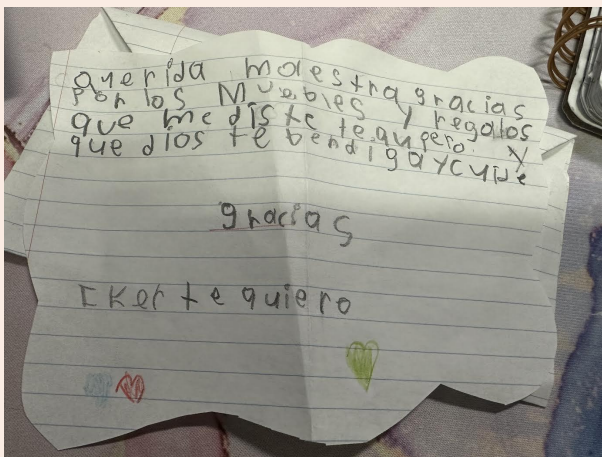 querida maestra gracias
por los Muebles y regalos
que me diste te quiero y
que dios te bendiga y cuide
gracias
Iker te quiero